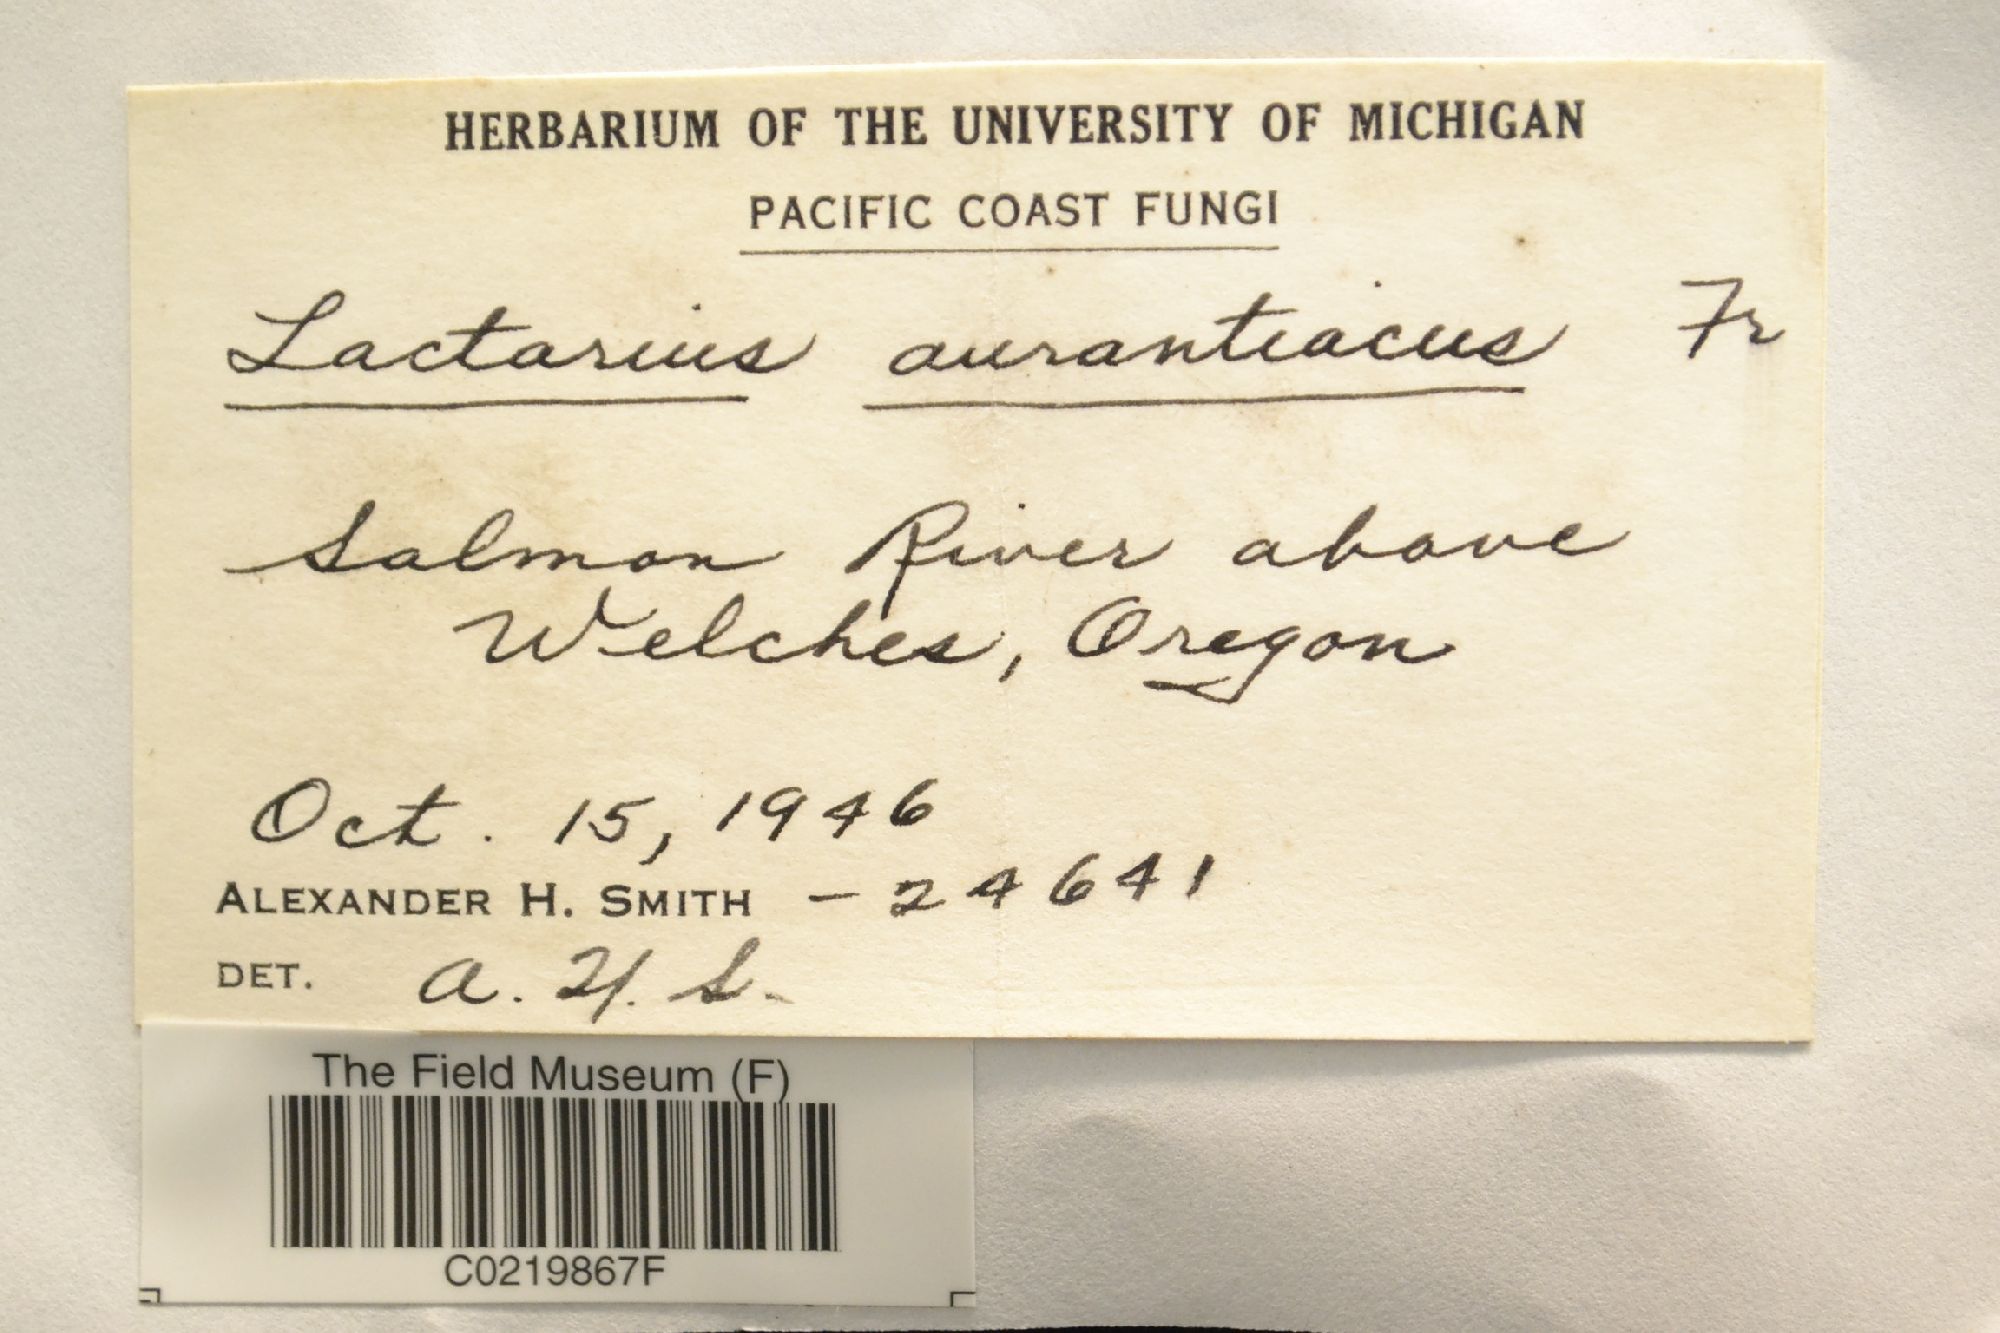 HERBARIUM OF THE UNIVERSITY OF MICHIGAN
PACIFIC COAST FUNGI
Lactarius aurantiacus Fr
Salmon River above
Welches, Oregon
Oct. 15, 1946
ALEXANDER H. SMITH - 24641
DET. A. H. S.
The Field Museum (F)
C0219867F